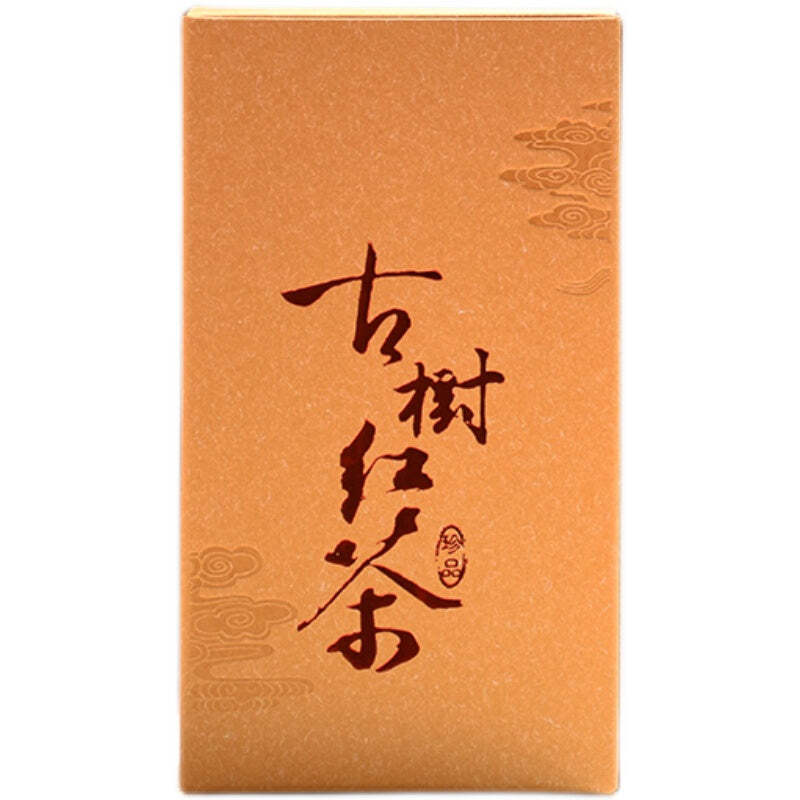 古樹红茶
珍品